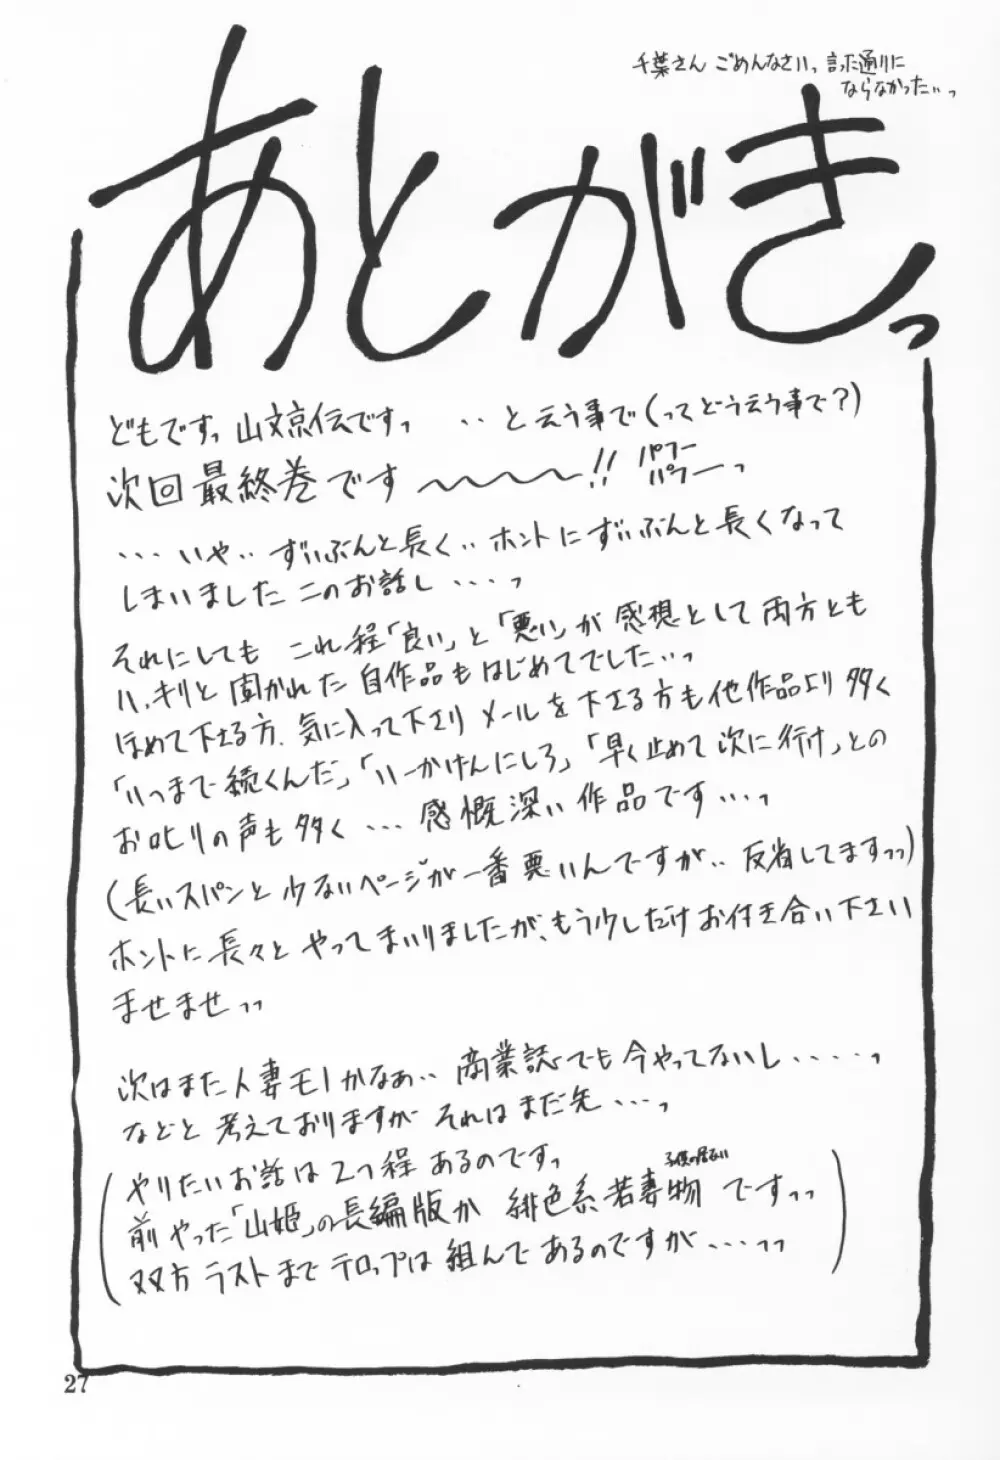 千葉さん ごめんなさいっ 言った通りに
ならなかったいっ
あとがきっ
どもですっ 山文京伝ですっ ‥と云う事で(ってどう云う事で?)
次回最終巻です〜〜〜!! パフー
パフーっ
・・・いや‥ずいぶんと長く‥ホントにずいぶんと長くなって
しまいましたこのお話し・・・・っ
それにしても これ程「良い」と「悪い」が感想として両方とも
ハッキリと聞かれた自作品もはじめてでした‥っ
ほめて下さる方、気に入って下さりメールを下さる方も他作品より多く
「いつまで続くんだ」「いーかげんにしろ」「早く止めて次に行け」との
お叱りの声も多く・・・感慨深い作品です・・・っ
(長いスパンと少ないページが一番悪いんですが‥反省してますっっ)
ホントに長々とやってまいりましたが、もう少しだけお付き合い下さい
ませませっっ
次はまた人妻モノかなぁ‥商業誌でも今やってないし・・・・・っ
などと考えておりますがそれはまだ先・・・っ
やりたいお話は2つ程あるのですっ
子供の居ない
前やった「山姫」の長編版か 緋色系若妻物 ですっっ
双方ラストまでプロップは組んであるのですが・・・っっ
27